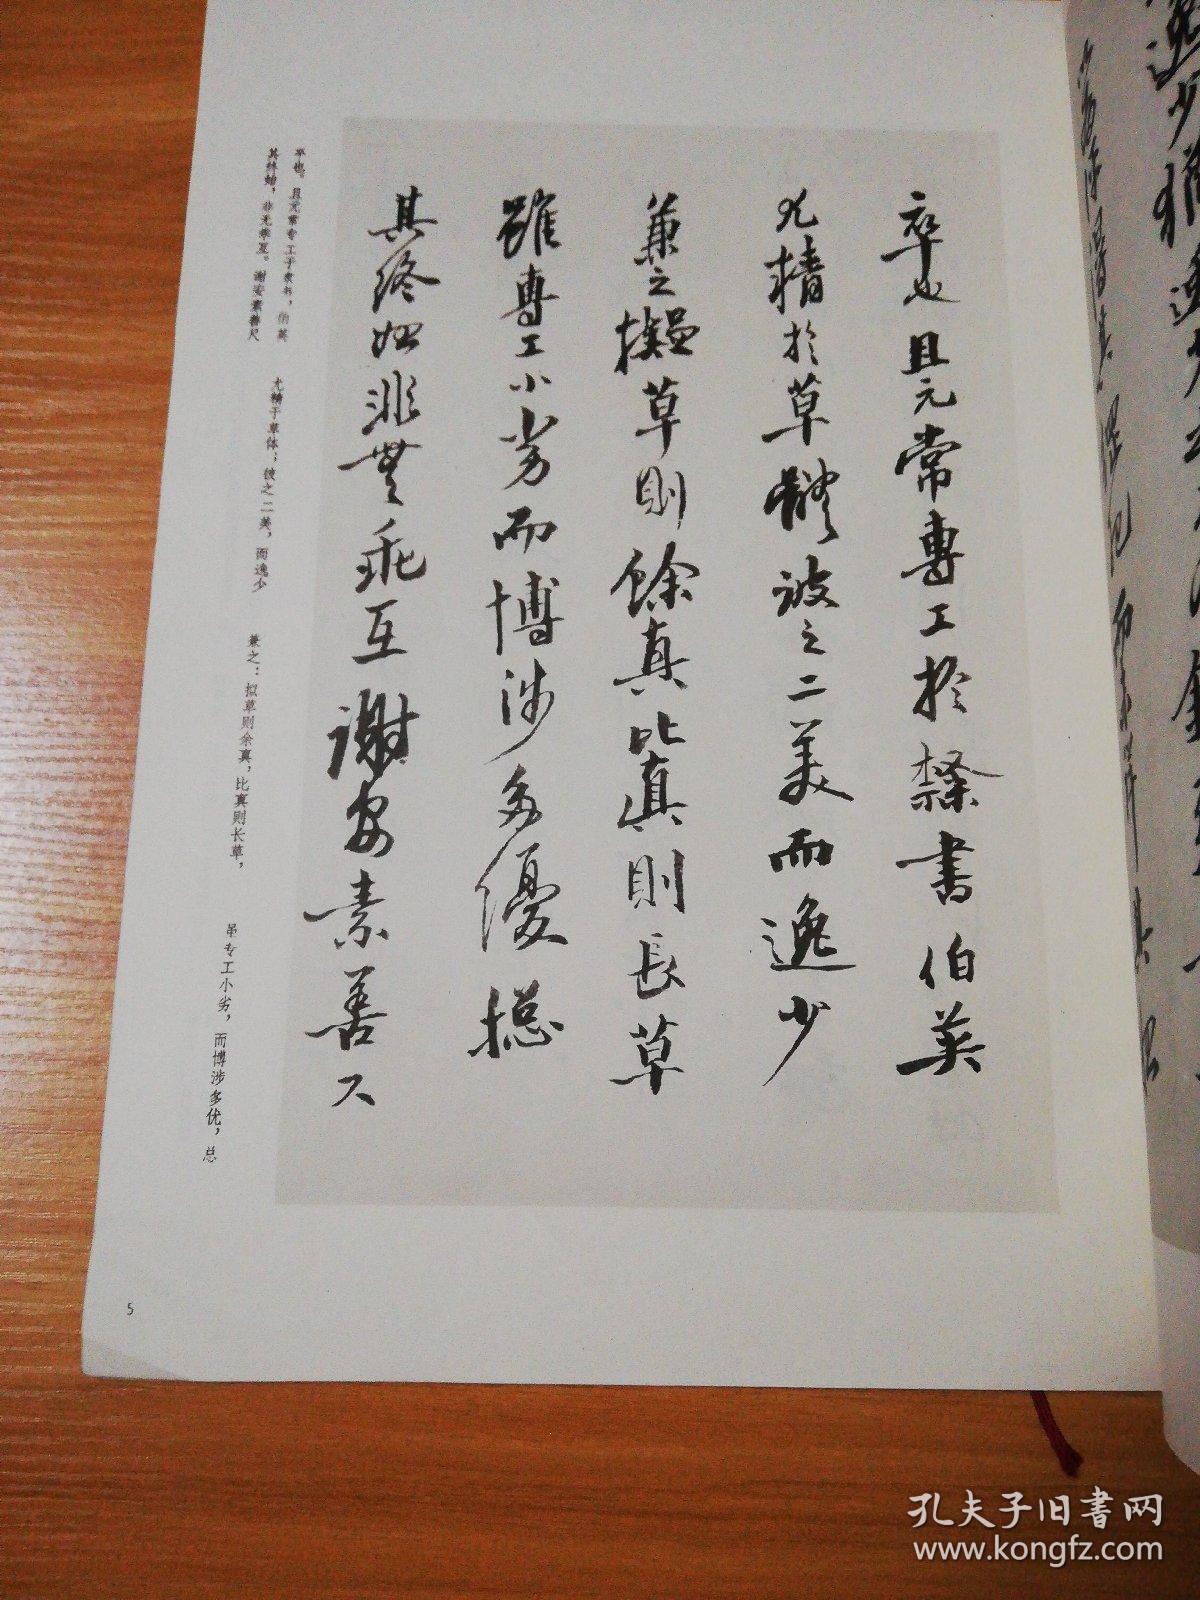 卒也且元常專工於隸書伯英
尤精於草體彼之二美而逸少
兼之擬草則餘真比真則長草
雖專工小劣而博涉多優揔
其終始非無乖互謝安素善尺
平也。且元常专工于隶书，伯英
尤精于草体；彼之二美，而逸少
兼之：拟草则余真，比真则长草，
虽专工小劣，而博涉多优，总
其终始，非无乖互。谢安素善尺
5
孔夫子旧书网
www.kongfz.com